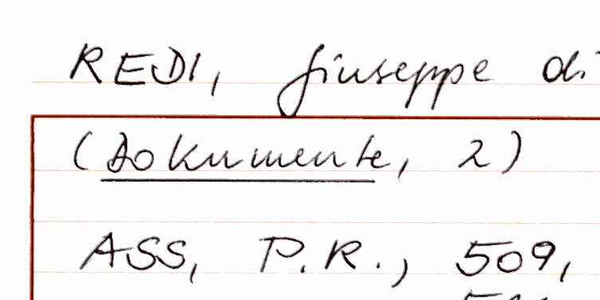 REDI, Giuseppe di
(Dokumente, 2)
ASS, P.R., 509,